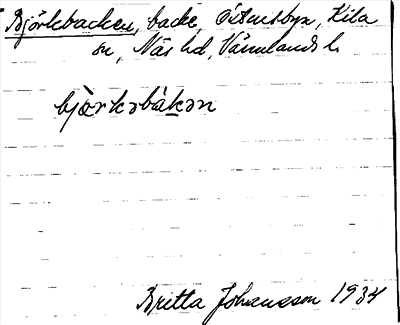 Björkbacken, backe, Östensbyn, Kila
sn, Näs hd, Värmlands l.
bjærkəbàkən
Britta Johansson 1934